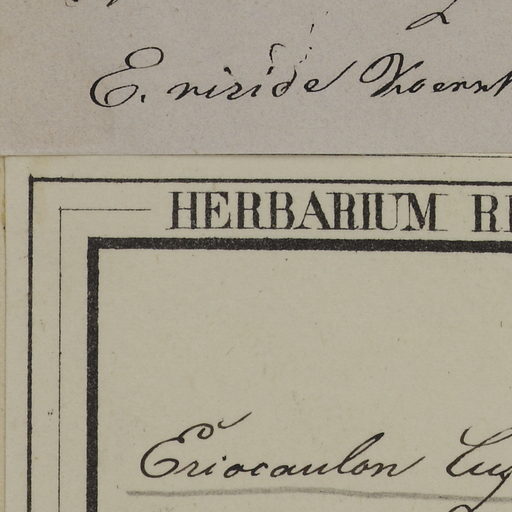 E. viride Koern
HERBARIUM
Eriocaulon